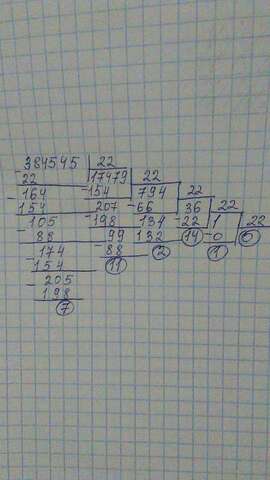 - 384545 | 22
22 | 17479 | 22
- 164 - 154 | 794 | 22
154 207 - 66 | 36 | 22
- 105 - 198 134 - 22 | 1 | 22
88 99 132 14 - 0 | 0
- 174 - 88 2 1
154 11
- 205
198
7